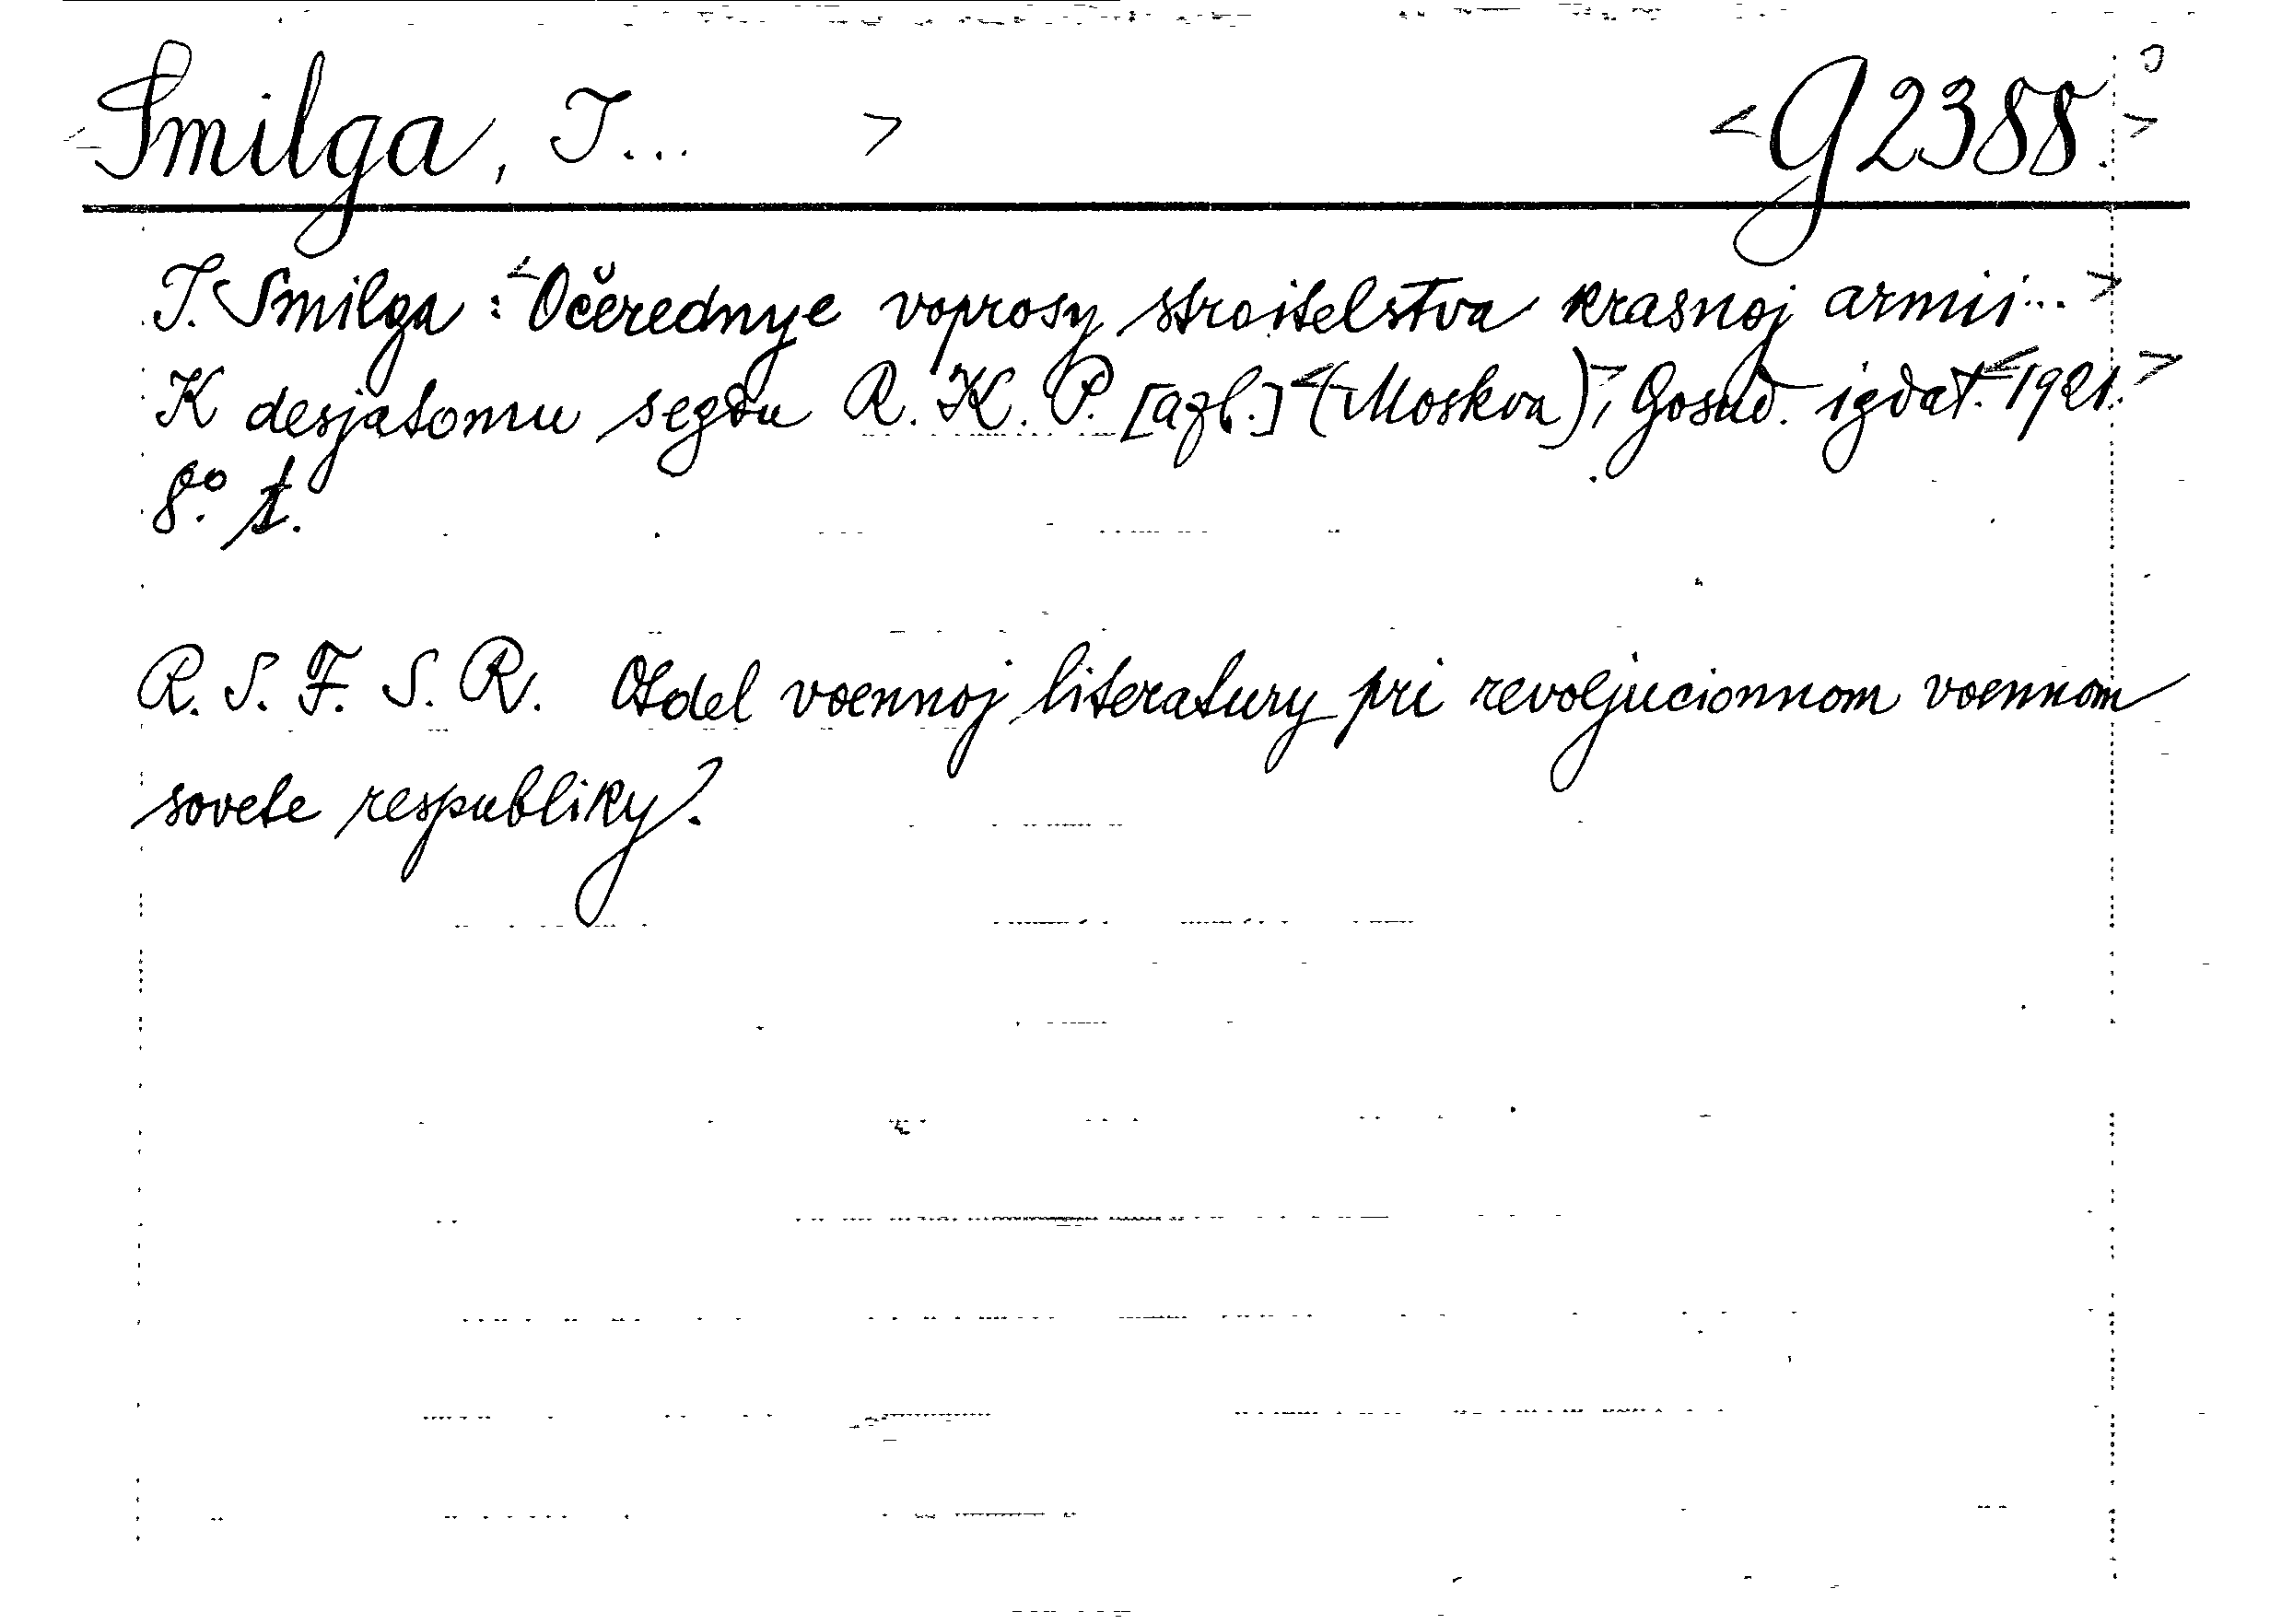 <Smilga, I... > <G 2388.>
I. Smilga: <Očerednye voprosy stroitelstva krasnoj armii...>
K desjatomu sezdu R. K. P. [azb.] <(Moskva)>, Gosud. izdat. <1921.>
8.° 1.
R. S. F. S. R. Otdel voennoj literatury pri revoljucionnom voennom
sovete respubliky.